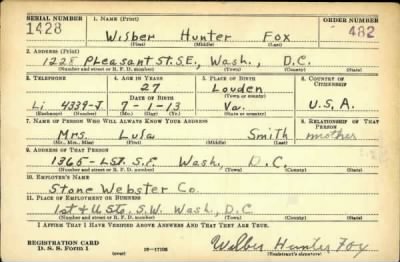 SERIAL NUMBER 1. NAME (Print) ORDER NUMBER
1428 Wilber Hunter Fox 482
(First) (Middle) (Last)
2. ADDRESS (Print)
1228 Pleasant St. S.E., Wash., D.C.
(Number and street or R. F. D. number) (Town) (County) (State)
3. TELEPHONE 4. AGE IN YEARS 5. PLACE OF BIRTH 6. COUNTRY OF CITIZENSHIP
27 Louden
DATE OF BIRTH (Town or county)
Li 4339-J 7-1-13 Va. U.S.A.
(Exchange) (Number) (Mo.) (Day) (Yr.) (State or country)
7. NAME OF PERSON WHO WILL ALWAYS KNOW YOUR ADDRESS 8. RELATIONSHIP OF THAT PERSON
Mrs. Lula Smith mother
(Mr., Mrs., Miss) (First) (Middle) (Last)
9. ADDRESS OF THAT PERSON
1365- L St. S.E. Wash, D.C.
(Number and street or R. F. D. number) (Town) (County) (State)
10. EMPLOYER'S NAME
Stone Webster Co.
11. PLACE OF EMPLOYMENT OR BUSINESS
1st & U Sts. S.W. Wash., D.C.
(Number and street or R. F. D. number) (Town) (County) (State)
I AFFIRM THAT I HAVE VERIFIED ABOVE ANSWERS AND THAT THEY ARE TRUE.
REGISTRATION CARD
D. S. S. Form 1 (over) Wilber Hunter Fox
(Registrant's signature)